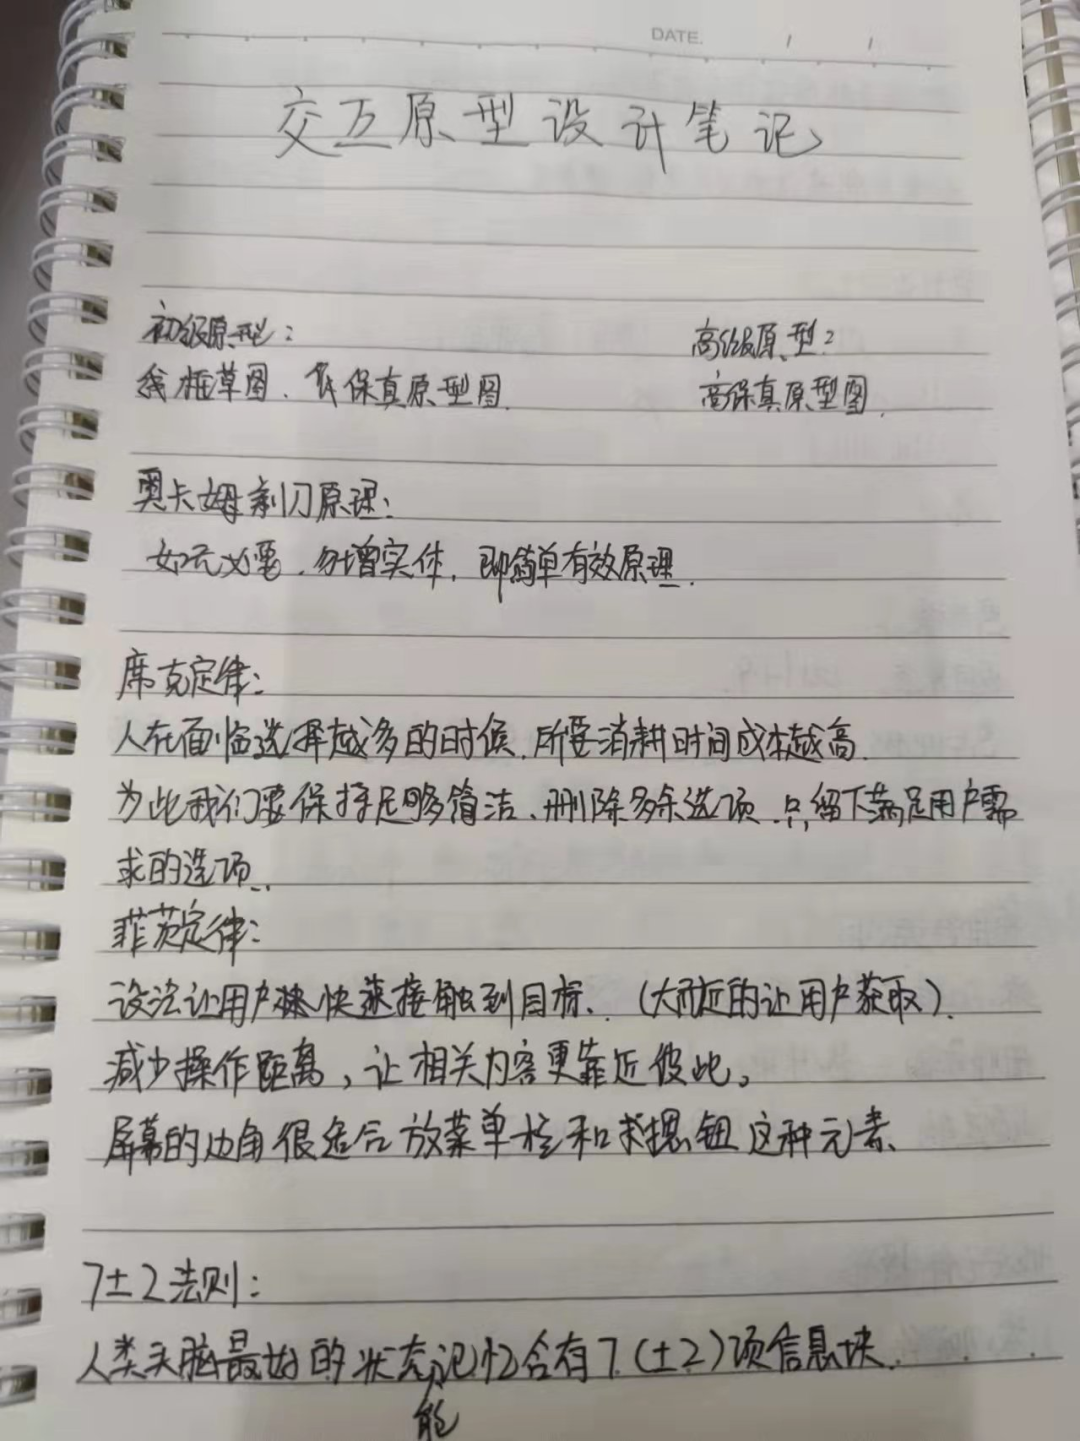 DATE. / /
交互原型设计笔记
初级原型: 高级原型:
线框草图、低保真原型图. 高保真原型图.
奥卡姆剃刀原理:
如无必要,勿增实体,即简单有效原理.
席克定律:
人在面临选择越多的时候,所要消耗时间成本越高.
为此我们要保持足够简洁、删除多余选项.只留下满足用户需
求的选项.
菲茨定律:
设法让用户快速接触到目标.(大而近的让用户获取).
减少操作距离,让相关内容更靠近彼此。
屏幕的边角很适合放菜单栏和按钮这种元素.
7±2法则:
人类头脑最好的状态能记忆含有7(±2)项信息块.